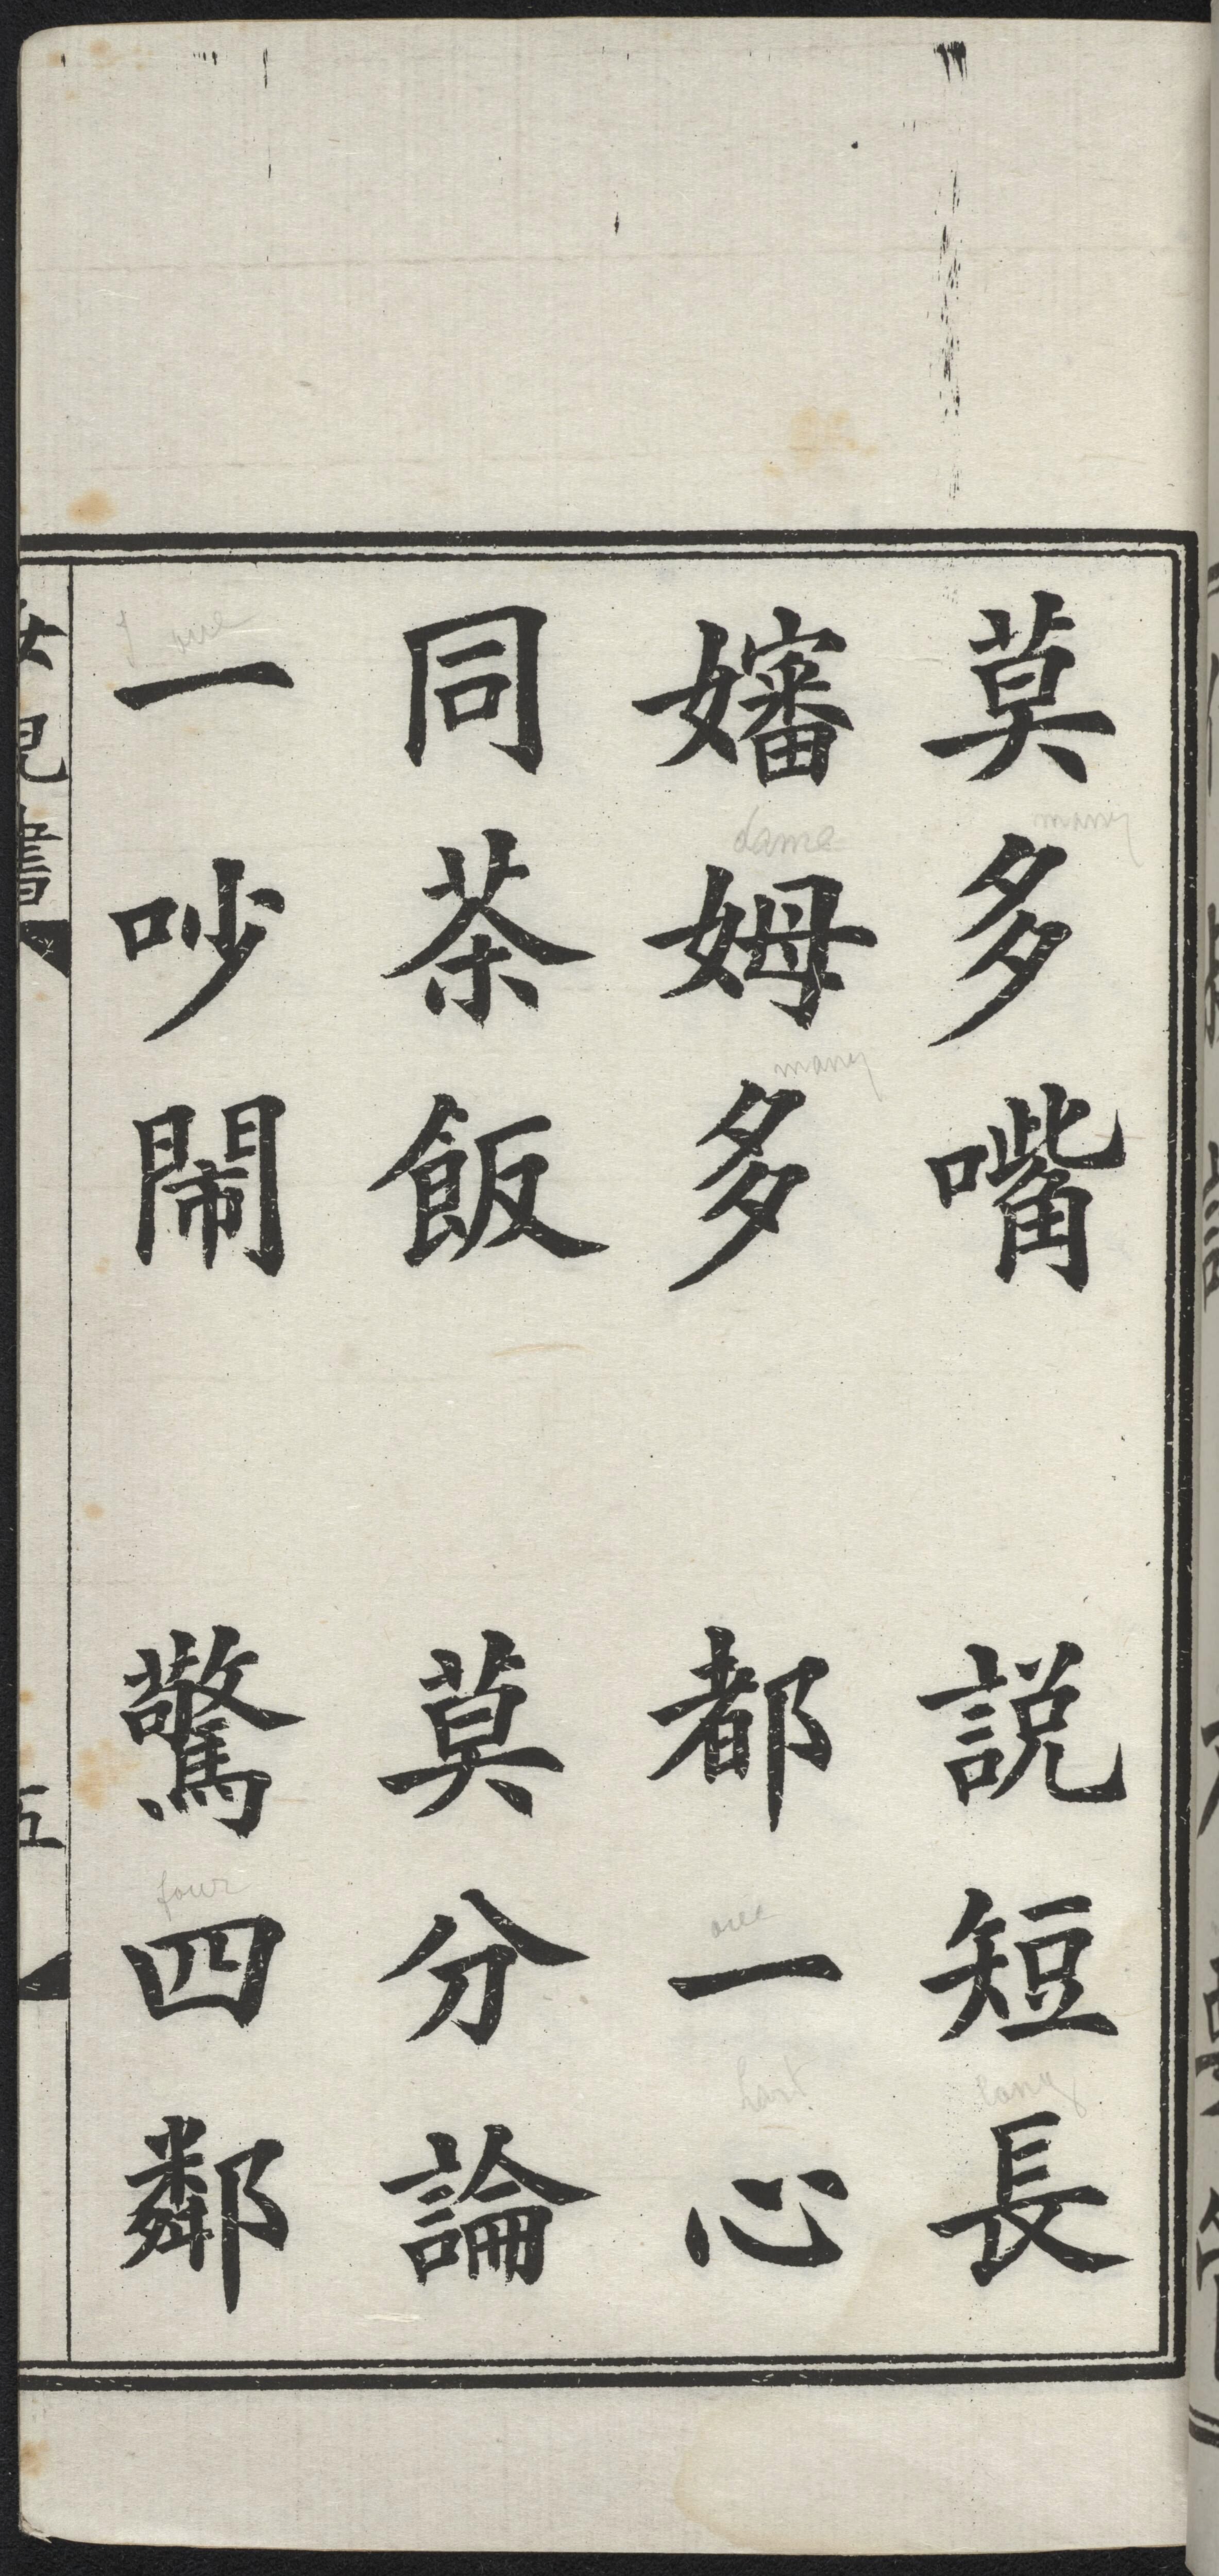 莫多嘴　說短長
嬸姆多　都一心
同茶飯　莫分論
一吵鬧　驚四鄰
女兒書
五
many
dame
many
one
long
one
four